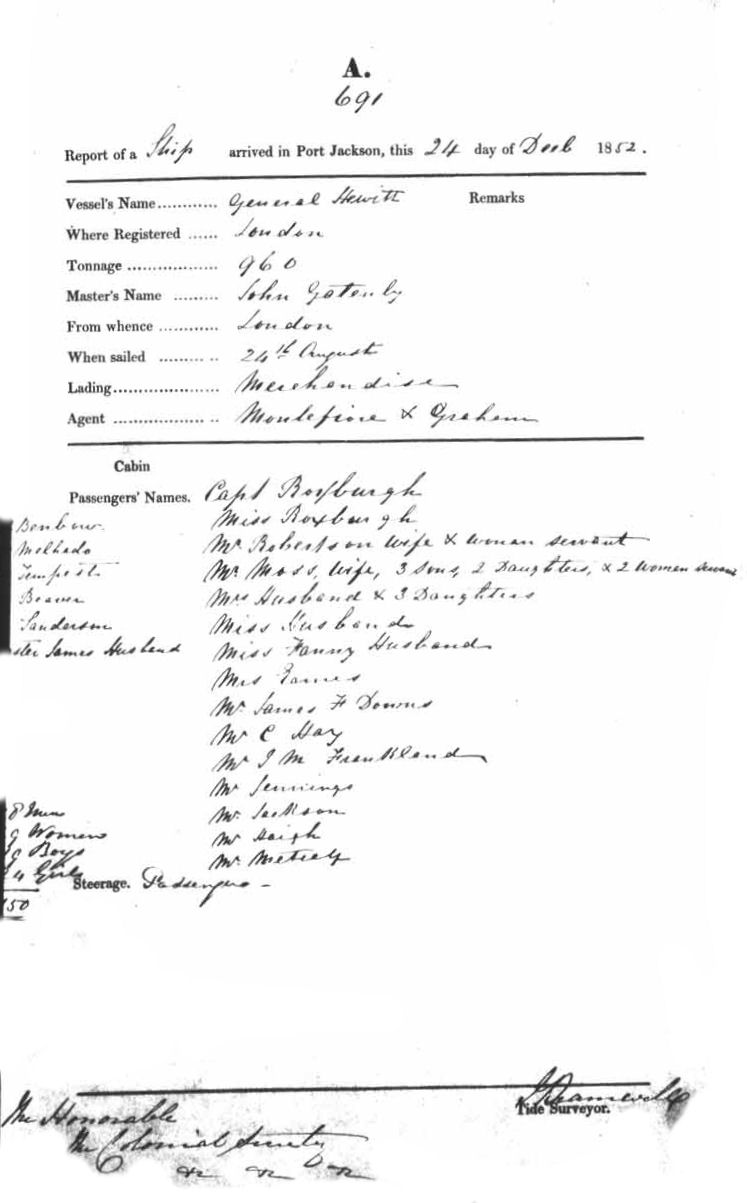 A.
691
Report of a Ship arrived in Port Jackson, this 24 day of Decb 1852.
Vessel's Name............ General Hewitt Remarks
Where Registered ...... London
Tonnage .................. 960
Master's Name ......... John Gatenby
From whence ............ London
When sailed ......... .. 24th August
Lading..................... Merchandise
Agent .................. .. Montefiore & Graham
Cabin
Passengers' Names. Capt Roxburgh
Benbow Miss Roxburgh
Melhado Mr Robertson wife & woman servant
Tempest Mr Moss, Wife, 3 Sons, 2 Daughters, & 2 Women servant
Beaver Mrs Husband & 3 Daughters
Sanderson Miss Husband
ster James Husband Miss Fanny Husband
Mrs Eames
Mr James F Downs
Mr C Hay
Mr J M Frankland
Mr Jennings
Mr Jackson
8 Men
9 Women Mr Haigh
9 Boys Mr Metcalf
4 Girls Steerage. Passengers -
150
Tide Surveyor.
The Honorable
The Colonial Secretary
&c &c &c